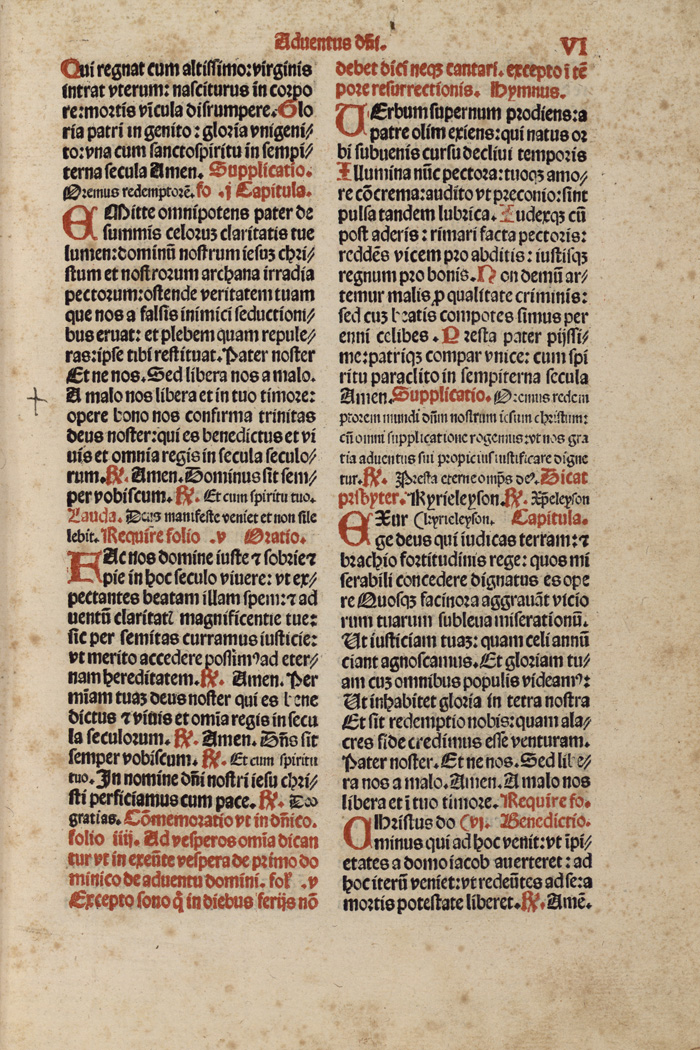 Aduentus dñi.
VI
Qui regnat cum altissimo: virginis
intrat vterum: nasciturus in corpo
re: mortis vĩcula disrumpere. Glo
ria patri ingenito: gloria vnigeni//
to: vna cum sanctospiritu in sempi//
terna secula Amen. Supplicatio.
Oremus redemptorē. fo .j Capitula.
EMitte omnipotens pater de
summis celoruȝ claritatis tue
lumen: dominū nostrum iesuȝ chri//
stum et nostrorum archana irradia
pectorum: ostende veritatem tuam
que nos a falsis inimici seductioni//
bus eruat: et plebem quam repule//
ras: ipse tibi restituat. Pater noster
Et ne nos. Sed libera nos a malo.
A malo nos libera et in tuo timore:
opere bono nos confirma trinitas
deus noster: qui es benedictus et vi
uis et omnia regis in secula seculo//
rum. ℟. Amen. Dominus sit sem//
per vobiscum. ℟. Et cum spiritu tuo.
Lauda. Deus manifeste veniet et non sile
lebit. Require folio .v Oratio.
FAc nos domine iuste ⁊ sobrie ⁊
pie in hoc seculo viuere: vt ex//
pectantes beatam illam spem: ⁊ ad
uentū claritatꝭ magnificentie tue:
sic per semitas curramus iusticie:
vt merito accedere possimꝰ ad eter//
nam hereditatem. ℟. Amen. Per
mīam tuaȝ deus noster qui es bene
dictus ⁊ viuis et omīa regis in secu
la seculorum. ℟. Amen. Dñs sit
semper vobiscum. ℟. Et cum spiritu
tuo. In nomine dñi nostri iesu chri//
sti perficiamus cum pace. ℟. Deo
gratias. Cōmemoratio vt in dñico.
folio iiij. Ad vesperos omīa dican
tur vt in exeūte vespera de primo do
minico de aduentu domini. fol .v
Excepto sono q̄ in diebus ferijs nō
debet dici neqȝ cantari. excepto ī tē
pore resurrectionis. Hymnus.
UErbum supernum prodiens: a
patre olim exiens: qui natus or
bi subuenis cursu decliui temporis
Illumina nūc pectora: tuoqȝ amo//
re cōcrema: audito vt preconio: sint
pulsa tandem lubrica. Iudexqȝ cū
post aderis: rimari facta pectoris:
reddēs vicem pro abditis: iustisqȝ
regnum pro bonis. Non demū ar//
temur malis ꝓ qualitate criminis:
sed cuȝ beatis compotes simus per
enni celibes. Presta pater pijssi//
me: patriqȝ compar vnice: cum spi
ritu paraclito in sempiterna secula
Amen. Supplicatio. Oremus redem
ptorem mundi dñm nostrum iesum christum:
cū omni supplicatione rogemus: vt nos gra
tia aduentus sui propicius iustificare digne
tur. ℟. Presta eterne omp̄s deꝰ. Dicat
prisbyter. Kyrieleyson. ℟. Xp̄eleyson
EXur (kyrieleyson. Capitula.
ge deus qui iudicas terram: ⁊
brachio fortitudinis rege: quos mi
serabili concedere dignatus es ope
re Quosqȝ facinora aggrauāt vicio
rum tuarum subleua miserationū.
Ut iusticiam tuaȝ: quam celi annū
ciant agnoscamus. Et gloriam tu//
am cuȝ omnibus populis videamꝰ:
Ut inhabitet gloria in tetra nostra
Et sit redemptio nobis: quam ala//
cres fide credimus esse venturam.
Pater noster. Et ne nos. Sed libe//
ra nos a malo. Amen. A malo nos
libera et ī tuo timore. Require fo.
CHristus do (vj. Benedictio.
minus qui ad hoc venit: vt īpi//
etates a domo iacob auerteret: ad
hoc iterū veniet: vt redeūtes ad se: a
mortis potestate liberet. ℟. Amē.